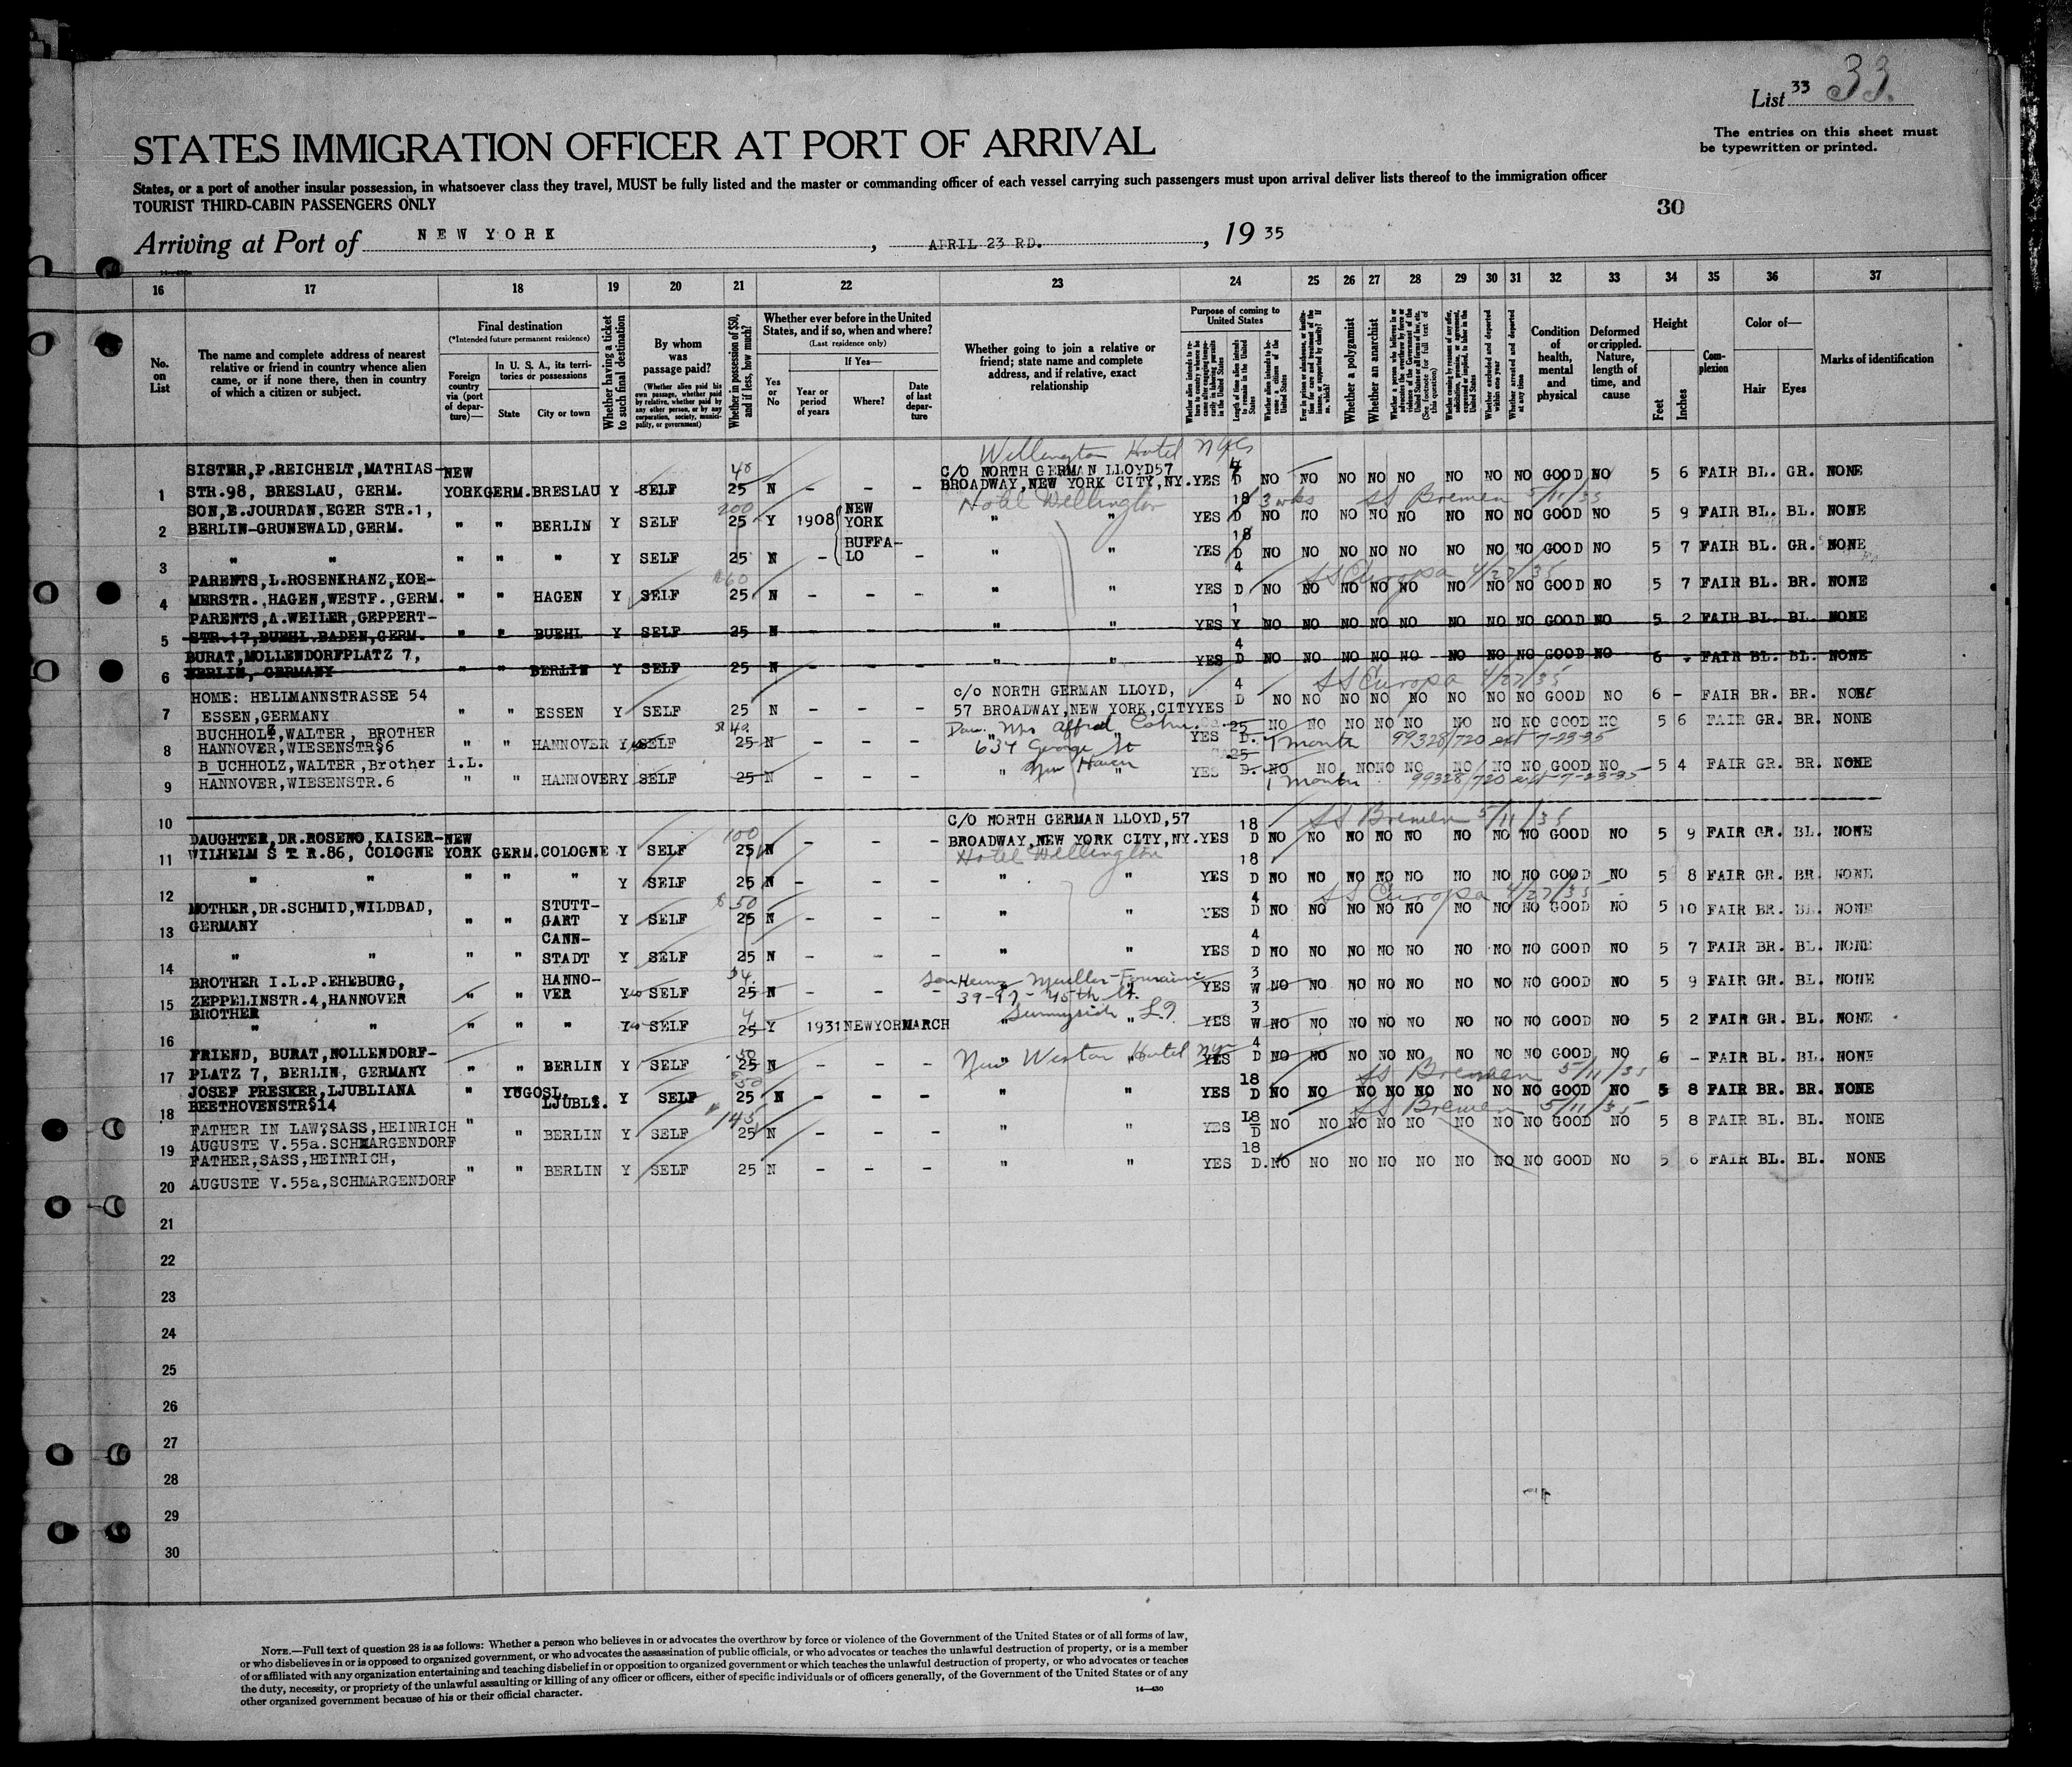 List 33 33.
The entries on this sheet must
be typewritten or printed.
STATES IMMIGRATION OFFICER AT PORT OF ARRIVAL
States, or a port of another insular possession, in whatsoever class they travel, MUST be fully listed and the master or commanding officer of each vessel carrying such passengers must upon arrival deliver lists thereof to the immigration officer
TOURIST THIRD-CABIN PASSENGERS ONLY
30
Arriving at Port of NEW YORK, APRIL 23 RD., 19 35
16 17 18 19 20 21 22 23 24 25 26 27 28 29 30 31 32 33 34 35 36 37
No. on List
The name and complete address of nearest relative or friend in country whence alien came, or if none there, then in country of which a citizen or subject.
Final destination
(*Intended future permanent residence)
Foreign country via (port of departure)—
In U. S. A., its territories or possessions
State
City or town
Whether having a ticket to such final destination
By whom was passage paid?
(Whether alien paid his own passage, whether paid by relative, whether paid by any other person, or by any corporation, society, municipality, or government)
Whether in possession of $50, and if less, how much?
Whether ever before in the United States, and if so, when and where?
(Last residence only)
Yes or No
If Yes—
Year or period of years
Where?
Date of last departure
Whether going to join a relative or friend; state name and complete address, and if relative, exact relationship
Purpose of coming to United States
Length of time alien intends to remain in the United States
Whether alien intends to become a citizen of the United States
Whether a polygamist
Whether an anarchist
(See footnote for full text of this question)
Whether excluded and deported within one year
Whether arrested and deported at any time
Condition of health, mental and physical
Deformed or crippled. Nature, length of time, and cause
Height
Feet
Inches
Complexion
Color of—
Hair
Eyes
Marks of identification
Wellington Hotel NYC
1 SISTER, P.REICHELT, MATHIAS-STR.98, BRESLAU, GERM. NEW YORK GERM. BRESLAU Y SELF 40 25 N - - - C/O NORTH GERMAN LLOYD 57 BROADWAY, NEW YORK CITY, NY. YES 4 D NO NO NO NO NO NO NO NO GOOD NO 5 6 FAIR BL. GR. NONE
Hotel Wellington 3 wks SS Bremen 5/11/35
2 SON, E.JOURDAN, EGER STR.1, BERLIN-GRUNEWALD, GERM. " " BERLIN Y SELF 200 25 Y 1908 NEW YORK BUFFALO " " YES 18 D NO NO NO NO NO NO NO NO GOOD NO 5 9 FAIR BL. BL. NONE
3 " " " " " Y SELF 25 N - - " " YES 18 D NO NO NO NO NO NO NO NO GOOD NO 5 7 FAIR BL. GR. NONE
SS Europa 4/27/35
4 PARENTS, L.ROSENKRANZ, KOEMERSTR., HAGEN, WESTF., GERM. " " HAGEN Y SELF $60 25 N - - - " " YES 4 D NO NO NO NO NO NO NO NO GOOD NO 5 7 FAIR BL. BR. NONE
5 PARENTS, A.WEILER, GEPPERT-STR.17, BUEHL.BADEN, GERM. " " BUEHL Y SELF 25 N - - - " " YES 1 Y NO NO NO NO NO NO NO NO GOOD NO 5 2 FAIR BL. BL. NONE
6 BURAT, MOLLENDORFPLATZ 7, BERLIN, GERMANY " " BERLIN Y SELF 25 N - - - " " YES 4 D NO NO NO NO NO NO NO NO GOOD NO 6 - FAIR BL. BL. NONE
SS Europa 4/27/35
7 HOME: HELLMANNSTRASSE 54 ESSEN, GERMANY " " ESSEN Y SELF 25 N - - - c/o NORTH GERMAN LLOYD, 57 BROADWAY, NEW YORK, CITY YES 4 D NO NO NO NO NO NO NO NO GOOD NO 6 - FAIR BR. BR. NONE
8 BUCHHOLZ, WALTER, BROTHER HANNOVER, WIESENSTR§6 " " HANNOVER Y SELF $40. 25 N - - - YES 25 D. NO NO NO NO NO NO NO NO GOOD NO 5 6 FAIR GR. BR. NONE
Mrs Alfred Cohn 634 George St New Haven
1 month 99328/720 ext 7-23-35
9 BUCHHOLZ, WALTER, Brother i.L. HANNOVER, WIESENSTR.6 " " HANNOVER Y SELF 25 N - - - " " YES 25 D. NO NO NO NO NO NO NO NO GOOD NO 5 4 FAIR GR. BR. NONE
1 month 99328/720 ext 7-23-35
10
SS Bremen 5/11/35
11 DAUGHTER, DR.ROSENO, KAISER-WILHELM STR.86, COLOGNE NEW YORK GERM. COLOGNE Y SELF 100 25 N - - - C/O NORTH GERMAN LLOYD, 57 BROADWAY, NEW YORK CITY, NY. YES 18 D NO NO NO NO NO NO NO NO GOOD NO 5 9 FAIR GR. BL. NONE
Hotel Wellington
12 " " " " " Y SELF 25 N - - - " " YES 18 D NO NO NO NO NO NO NO NO GOOD NO 5 8 FAIR GR. BR. NONE
SS Europa 4/27/35
13 MOTHER, DR.SCHMID, WILDBAD, GERMANY " " STUTTGART Y SELF $50 25 N - - - " " YES 4 D NO NO NO NO NO NO NO NO GOOD NO 5 10 FAIR BR. BL. NONE
14 " " " " CANNSTADT Y SELF 25 N - - - " " YES 4 D NO NO NO NO NO NO NO NO GOOD NO 5 7 FAIR BR. BL. NONE
15 BROTHER I.L.P.EHEBURG, ZEPPELINSTR.4, HANNOVER " " HANNOVER Y SELF $4. 25 N - - YES 3 W NO NO NO NO NO NO NO NO GOOD NO 5 9 FAIR GR. BL. NONE
39-47-45th St. Sunnyside L.I.
16 BROTHER " " " " " Y SELF 25 Y 1931 NEWYORK MARCH " " YES 3 W NO NO NO NO NO NO NO NO GOOD NO 5 2 FAIR GR. BL. NONE
New Weston Hotel NYC
17 FRIEND, BURAT, NOLLENDORF-PLATZ 7, BERLIN, GERMANY " " BERLIN Y SELF 50 25 N - - - " YES 4 D NO NO NO NO NO NO NO NO GOOD NO 6 - FAIR BL. BL. NONE
SS Bremen 5/11/35
18 JOSEF PRESKER, LJUBLIANA BEETHOVENSTR§14 " YUGOSL. LJUBLI. Y SELF 50 25 N - - - " " YES 18 D NO NO NO NO NO NO NO NO GOOD NO 5 8 FAIR BR. BR. NONE
SS Bremen 5/11/35
19 FATHER IN LAW, SASS, HEINRICH AUGUSTE V.55a.SCHMARGENDORF " " BERLIN Y SELF 145 25 N - - - " " YES 18 D NO NO NO NO NO NO NO NO GOOD NO 5 8 FAIR BL. BL. NONE
20 FATHER, SASS, HEINRICH, AUGUSTE V.55a, SCHMARGENDORF " " BERLIN Y SELF 25 N - - - " " YES 18 D. NO NO NO NO NO NO NO NO GOOD NO 5 6 FAIR BL. BL. NONE
21
22
23
24
25
26
27
28
29
30
NOTE.—Full text of question 28 is as follows: Whether a person who believes in or advocates the overthrow by force or violence of the Government of the United States or of all forms of law,
or who disbelieves in or is opposed to organized government, or who advocates the assassination of public officials, or who advocates or teaches the unlawful destruction of property, or is a member
of or affiliated with any organization entertaining and teaching disbelief in or opposition to organized government or which teaches the unlawful destruction of property, or who advocates or teaches
the duty, necessity, or propriety of the unlawful assaulting or killing of any officer or officers, either of specific individuals or of officers generally, of the Government of the United States or of any
other organized government because of his or their official character.
14—430